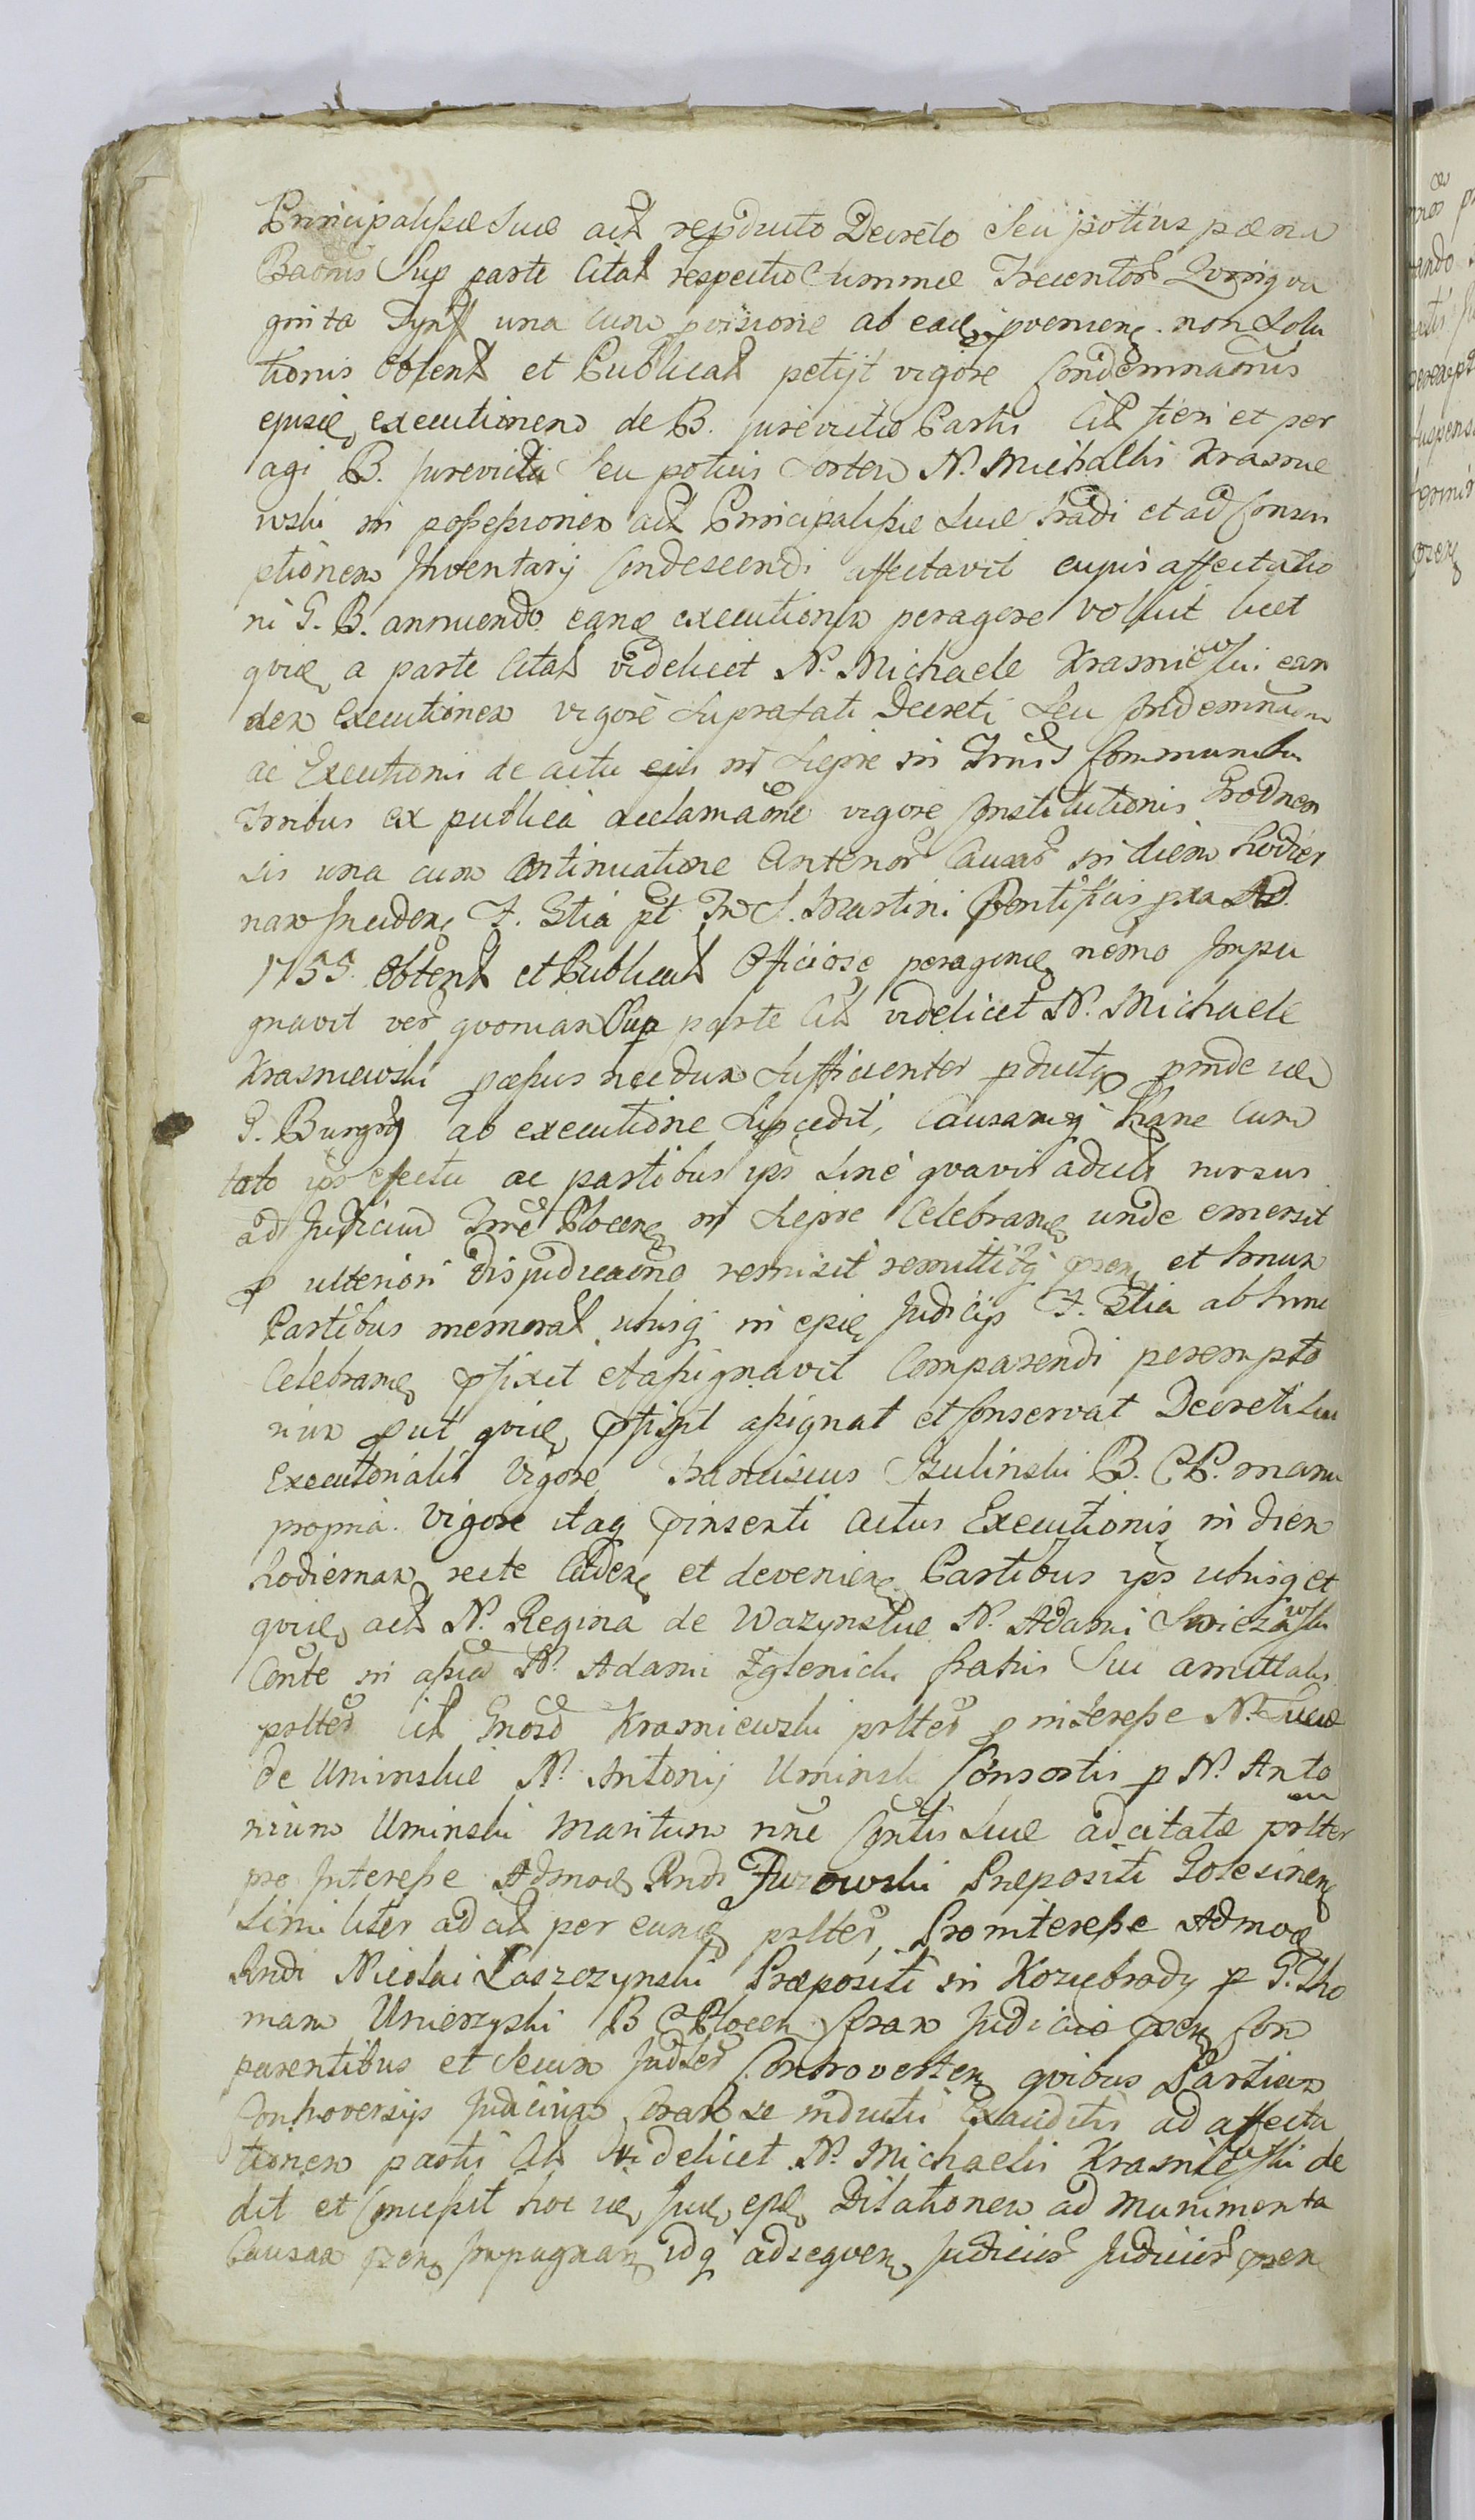 Principalissæ Suæ act reproducto Decreto Seu potius pœna
Baōnis Sup parte Citat respectu Summæ Trecentor Qvinqva
ginta Tynff una cum provisione ab eade proveniē. non Solu
tionis Obtent et Publicat petijt vigore Condemnaōnis
ejusde executionem de B. jurevictis Partis Cit fieri et per
agi B. jurevicta Seu potius Sortem N. Michaelis Krasnie
wski in possessionem act Principalissæ Suæ tradi et ad Conscri
ptionem Inventarij Condescendi affectavit cujus affectatio
ni G. B. annuendo eand executionem peragere voluit licet
qvide a parte Citat videlicet N. Michaele Krasniewski ean
dem Executionem vigore Suprafati Decreti Seu Condemnaōm
ac Executionis de actu ejus in Siepre in Trnis Communibus
Trnibus ex publica acclamaōne vigore Constitutionis Grodnen
sis una cum Continuatione Anterior Causar in diem hodier
nam Inciden F. Stia pt Fto S. Martini Pontificis pxa AD.
1755. Obtent et Publicat Officiose peragende nemo Impu
gnavit ver qvoniam Sup parte Cit videlicet N. Michaele
Krasniewski passus necdum Sufficienter pductq proinde ide
G. Burgrbg ab executione Supcedit, Causamq hanc Cum
toto ipso effectu ac partibus ips Sine qvavis adcit rursus
ad Judicium Trre Plocen in Siepre Celebrand unde emersit
p ulteriori disjudicaōne remisit remittitq psen et trnum
Partibus memorat utrisq in epis Judicijs F. Stia ab hinc
Celebrand pfixit et assignavit Comparendi perempto
rium put qvide pfigit assignat et Conservat Decreti Sui
Executorialis Vigore Franciscus Szulinski B. C P. manu
propria. Vigore itaq pinserti actus Executionis in diem
hodiernam recte Caden et devenien Partibus ips utrisq et
qvide act N. Regina de Wazynskie N. Adami Swiezawski
Conte in assia N. Adami Zglenicki fratris Sui amitalis
psltēr Cit Gnosd Krasniewski psltēr p interesse N. Lucæ
de Uminskie N. Antonij Uminski Consortis p N. Anto
nium Uminski Maritum nne Contis Suæ adcitatæ psltēr
pro Interesse Admod Rndi Jurowski Præpositi Golesinen
Similiter adcit per eund psltēr, Pro interesse Admod
Rndi Nicolai Laszczynski Præpositi in Koziebrody p G. Tho
mam Umierzyski B C Plocen Coram Judicio psen Com
parentibus et Secum Judtēr Controverten qvibus Partium
Controversijs Judicium Coram se inductis Exauditis ad affecta
tionem partis Cit videlicet N. Michaelis Krasniewski de
dit et Concessit hoc ide Jud epde Dilationem ad Munimenta
Causam psen Impugnan idq ad seqven Judicior Judicior psen